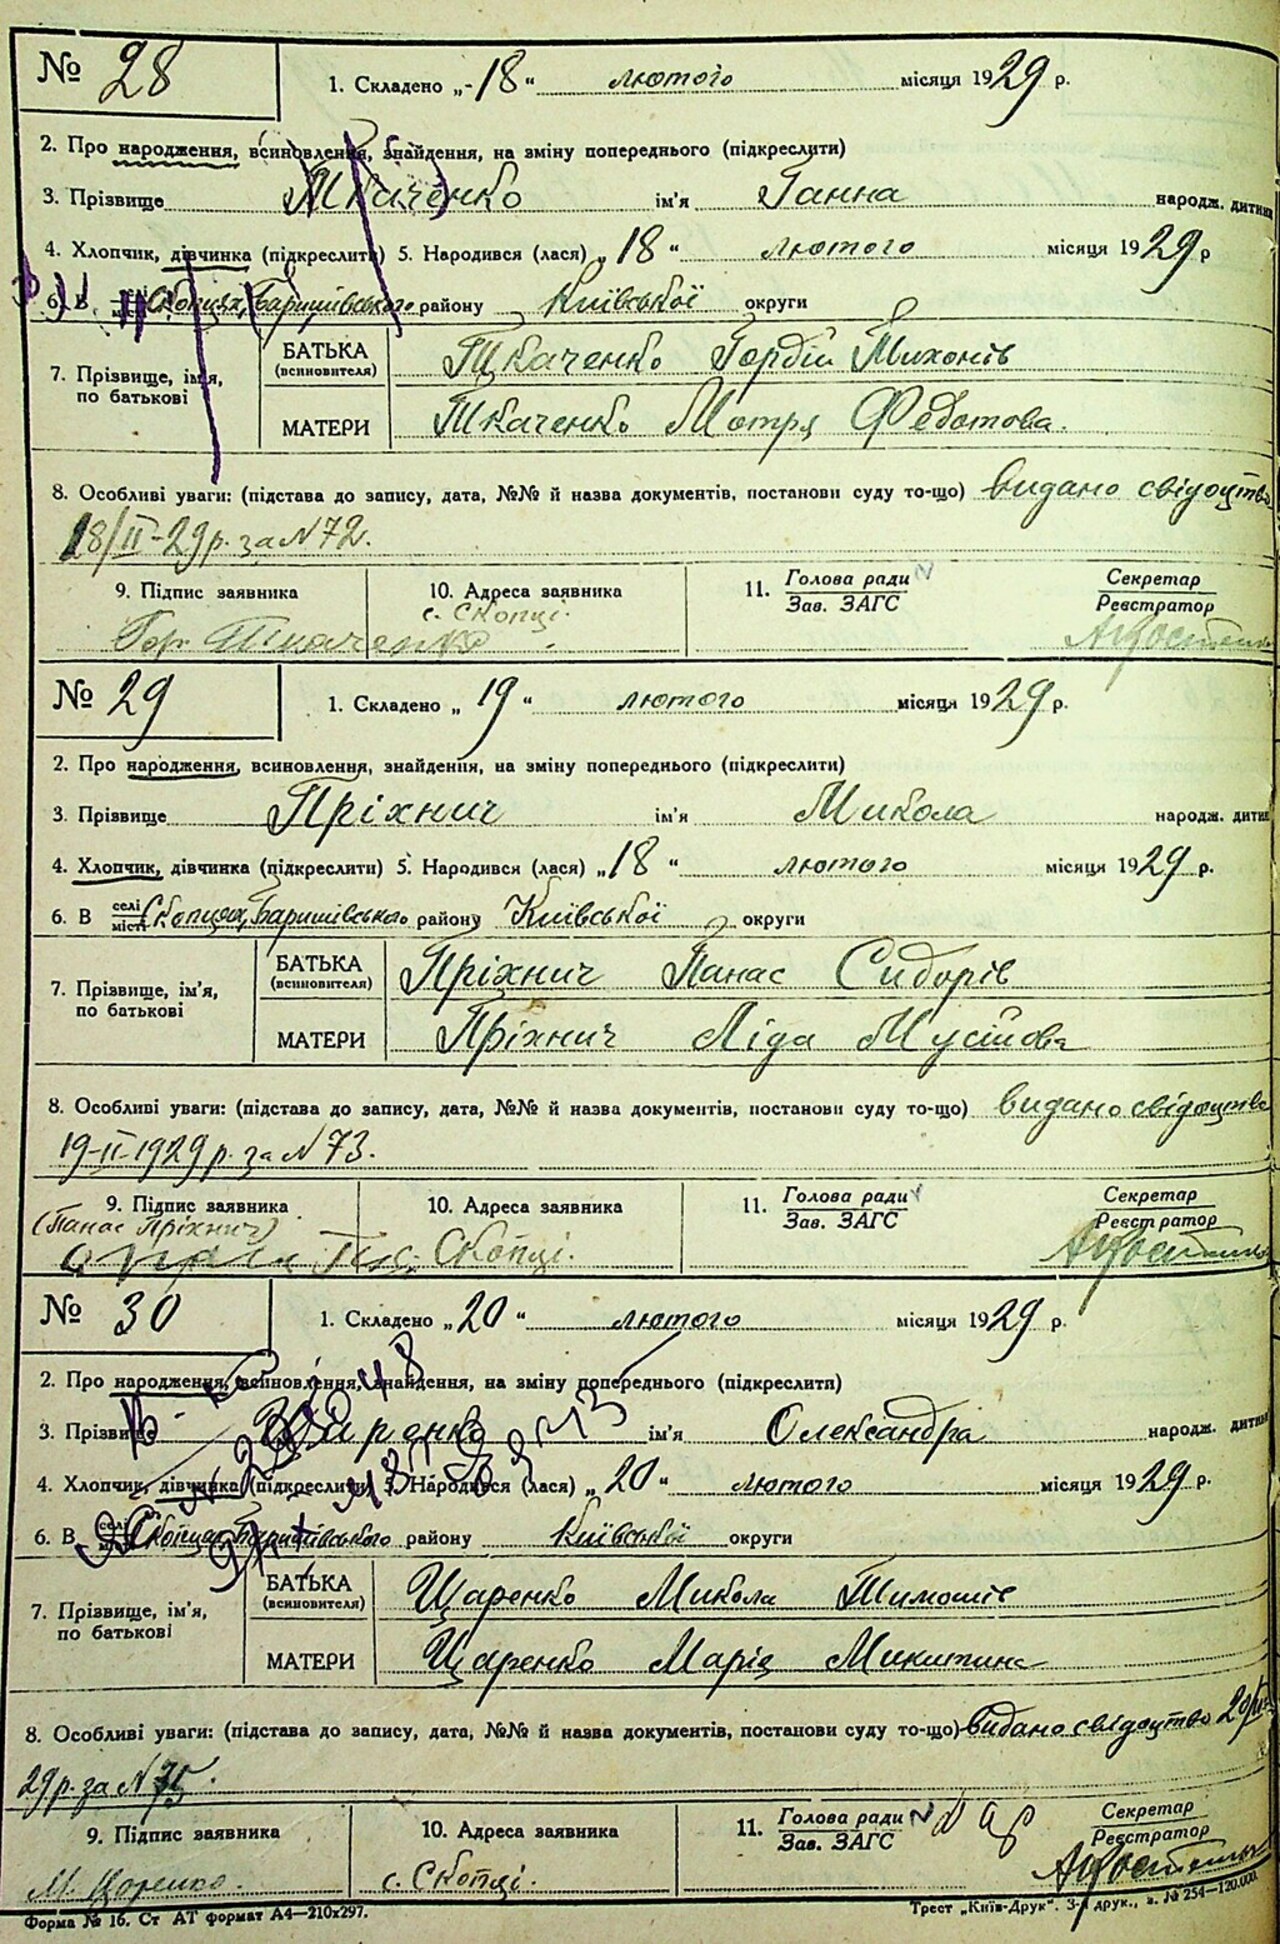 № 28
1. Складено „-18“ лютого місяця 1929 р.
2. Про народження, всиновлення, знайдення, на зміну попереднього (підкреслити)
3. Прізвище Ткаченко ім'я Ганна народж. дитини
4. Хлопчик, дівчинка (підкреслити) 5. Народився (лася) „18“ лютого місяця 1929 р
6. В селі Скопцях, Баришівського району Київської округи
7. Прізвище, ім'я, по батькові
БАТЬКА (всиновителя) Ткаченко Гордій Тихонів
МАТЕРИ Ткаченко Мотря Федотова.
8. Особливі уваги: (підстава до запису, дата, №№ й назва документів, постанови суду то-що) видано свідоцтво
18/II-29 р. за N 72.
9. Підпис заявника 10. Адреса заявника 11. Голова ради Зав. ЗАГС Секретар Реєстратор
Гор Ткаченко с. Скопці.
№ 29
1. Складено „19“ лютого місяця 1929 р.
2. Про народження, всиновлення, знайдення, на зміну попереднього (підкреслити)
3. Прізвище Пріхнич ім'я Микола народж. дитин
4. Хлопчик, дівчинка (підкреслити) 5. Народився (лася) „18“ лютого місяця 1929 р.
6. В селі місті Скопцях, Баришівського району Київської округи
7. Прізвище, ім'я, по батькові
БАТЬКА (всиновителя) Пріхнич Панас Сидорів
МАТЕРИ Пріхнич Ліда Мусіївна
8. Особливі уваги: (підстава до запису, дата, №№ й назва документів, постанови суду то-що) видано свідоцтво
19-II-1929 р. за N 73.
9. Підпис заявника 10. Адреса заявника 11. Голова ради Зав. ЗАГС Секретар Реєстратор
(Панас Пріхнич)
с. Скопці.
№ 30
1. Складено „20“ лютого місяця 1929 р.
2. Про народження, всиновлення, знайдення, на зміну попереднього (підкреслити)
3. Прізвище Царенко ім'я Олександра народж. дитини
4. Хлопчик, дівчинка (підкреслити) 5. Народився (лася) „20“ лютого місяця 1929 р.
6. В селі Скопцях, Баришівського району Київської округи
7. Прізвище, ім'я, по батькові
БАТЬКА (всиновителя) Царенко Микола Тимошів
МАТЕРИ Царенко Марія Микитина
8. Особливі уваги: (підстава до запису, дата, №№ й назва документів, постанови суду то-що) видано свідоцтво 20/II
29 р. за N 75.
9. Підпис заявника 10. Адреса заявника 11. Голова ради Зав. ЗАГС Секретар Реєстратор
М. Царенко. с. Скопці.
Форма № 16. Ст АТ формат А4—210х297. Трест „Київ-Друк“. 3-я друк., з. № 254—120.000.